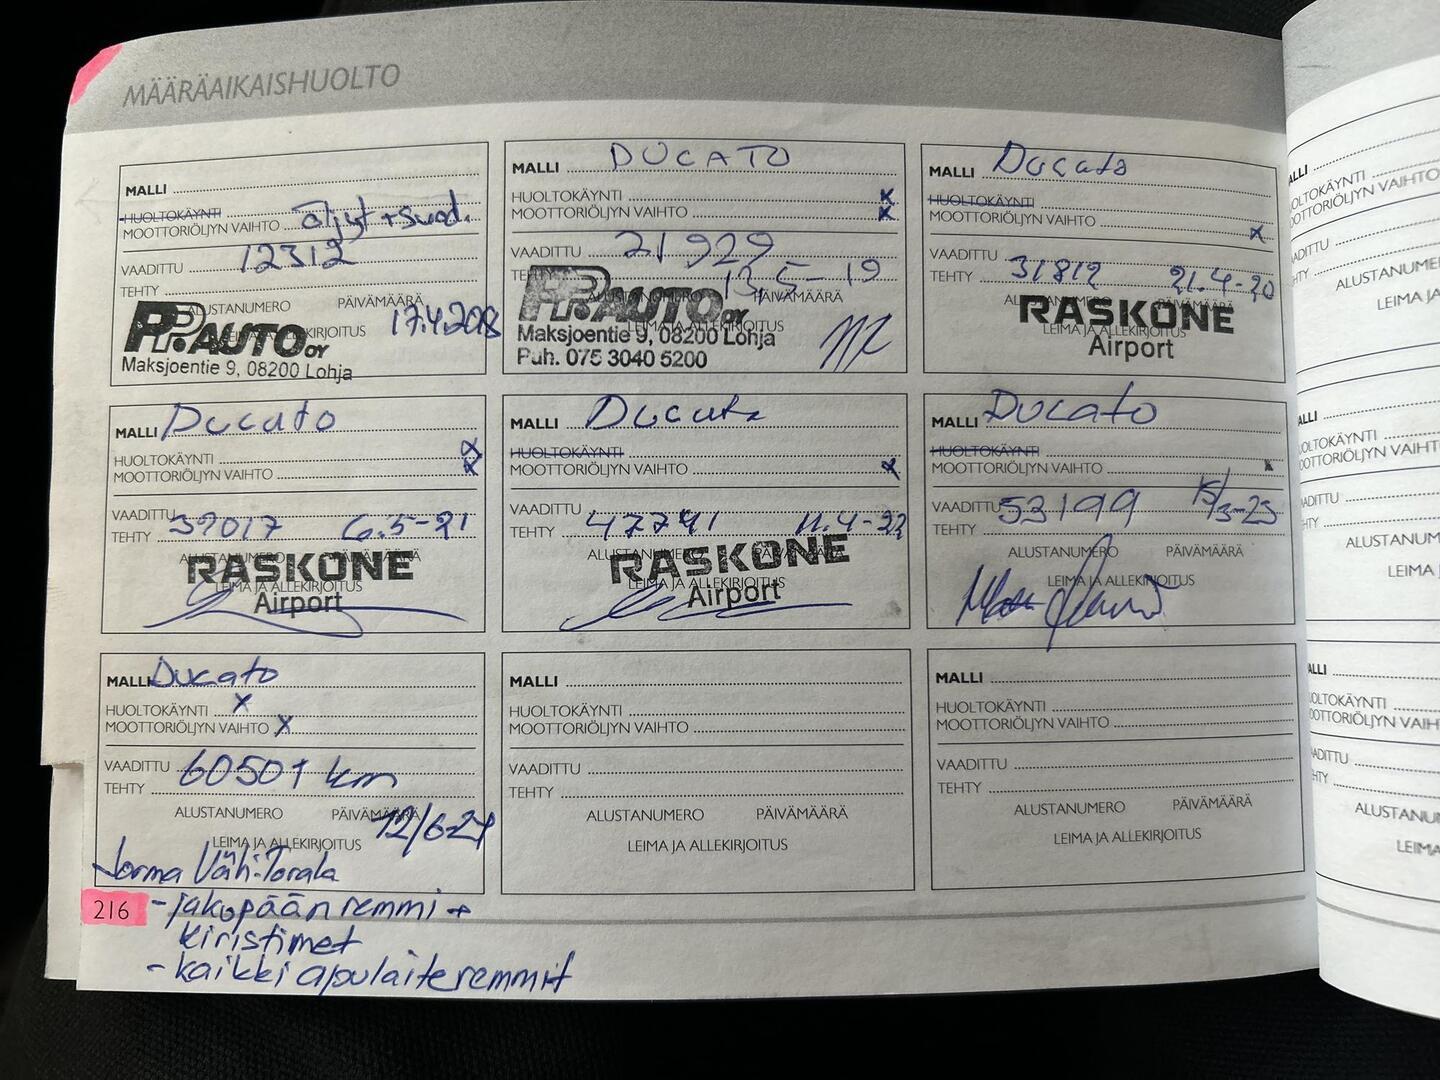 MÄÄRÄAIKAISHUOLTO
MALLI
HUOLTOKÄYNTI
MOOTTORIÖLJYN VAIHTO öljyt + suod.
VAADITTU 12312
TEHTY
ALUSTANUMERO PÄIVÄMÄÄRÄ
LEIMA JA ALLEKIRJOITUS 17.4.2018
PP.AUTO OY
Maksjoentie 9, 08200 Lohja
MALLI DUCATO
HUOLTOKÄYNTI x
MOOTTORIÖLJYN VAIHTO x
VAADITTU 21929
TEHTY 13.5-19
ALUSTANUMERO PÄIVÄMÄÄRÄ
PP.AUTO OY
LEIMA JA ALLEKIRJOITUS
Maksjoentie 9, 08200 Lohja
Puh. 075 3040 5200
MALLI Ducato
HUOLTOKÄYNTI
MOOTTORIÖLJYN VAIHTO x
VAADITTU
TEHTY 31812 21.4-20
ALUSTANUMERO PÄIVÄMÄÄRÄ
RASKONE
LEIMA JA ALLEKIRJOITUS
Airport
MALLI Ducato
HUOLTOKÄYNTI x
MOOTTORIÖLJYN VAIHTO x
VAADITTU
TEHTY 39017 6.5-21
ALUSTANUMERO PÄIVÄMÄÄRÄ
RASKONE
LEIMA JA ALLEKIRJOITUS
Airport
MALLI Ducato
HUOLTOKÄYNTI
MOOTTORIÖLJYN VAIHTO x
VAADITTU
TEHTY 47741 11.4-22
ALUSTANUMERO PÄIVÄMÄÄRÄ
RASKONE
LEIMA JA ALLEKIRJOITUS
Airport
MALLI Ducato
HUOLTOKÄYNTI
MOOTTORIÖLJYN VAIHTO x
VAADITTU
TEHTY 53199 15/3-23
ALUSTANUMERO PÄIVÄMÄÄRÄ
LEIMA JA ALLEKIRJOITUS
MALLI Ducato
HUOLTOKÄYNTI x
MOOTTORIÖLJYN VAIHTO x
VAADITTU 60501 km
TEHTY
ALUSTANUMERO PÄIVÄMÄÄRÄ
LEIMA JA ALLEKIRJOITUS 12/6 24
Jorma Vähi-Torala
- jakopään remmi +
kiristimet
- kaikki apulaiteremmit
MALLI
HUOLTOKÄYNTI
MOOTTORIÖLJYN VAIHTO
VAADITTU
TEHTY
ALUSTANUMERO PÄIVÄMÄÄRÄ
LEIMA JA ALLEKIRJOITUS
MALLI
HUOLTOKÄYNTI
MOOTTORIÖLJYN VAIHTO
VAADITTU
TEHTY
ALUSTANUMERO PÄIVÄMÄÄRÄ
LEIMA JA ALLEKIRJOITUS
216